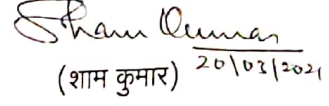 Sham Kumar
20/03/2021
(शाम कुमार)